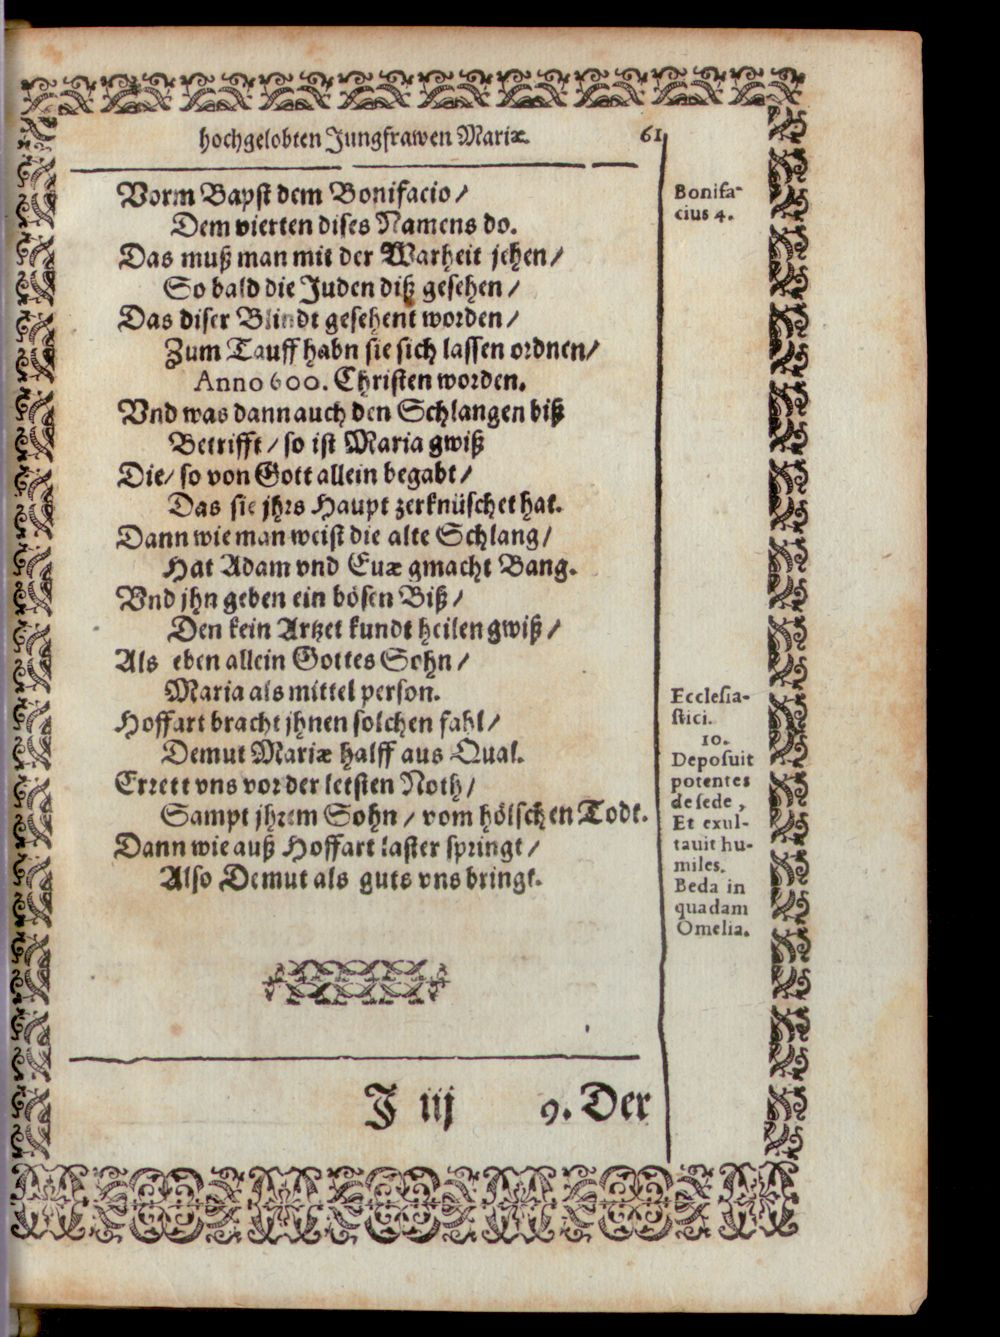 hochgelobten Jungfrawen Mariæ. 61
Vorm Bapst dem Bonifacio /
Dem vierten dises Namens do.
Das muß man mit der Warheit jehen /
So bald die Juden diß gesehen /
Das diser Blindt gesehent worden /
Zum Tauff habn sie sich lassen ordnen /
Anno 600. Christen worden.
Vnd was dann auch den Schlangen biß
Betrifft / so ist Maria gwiß
Die / so von Gott allein begabt /
Das sie jhrs Haupt zerknüschet hat.
Dann wie man weist die alte Schlang /
Hat Adam vnd Euæ gmacht Bang.
Vnd jhn geben ein bösen Biß /
Den kein Artzet kundt heilen gwiß /
Als eben allein Gottes Sohn /
Maria als mittel person.
Hoffart bracht jhnen solchen fahl /
Demut Mariæ halff aus Qual.
Errett vns vor der letsten Noth /
Sampt jhrem Sohn / vom hölschen Todt.
Dann wie auß Hoffart laster springt /
Also Demut als guts vns bringt.
Bonifa-
cius 4.
Ecclesia-
stici.
10.
Deposuit
potentes
de sede ,
Et exul-
tavit hu-
miles.
Beda in
quadam
Omelia.
J iij 9. Der